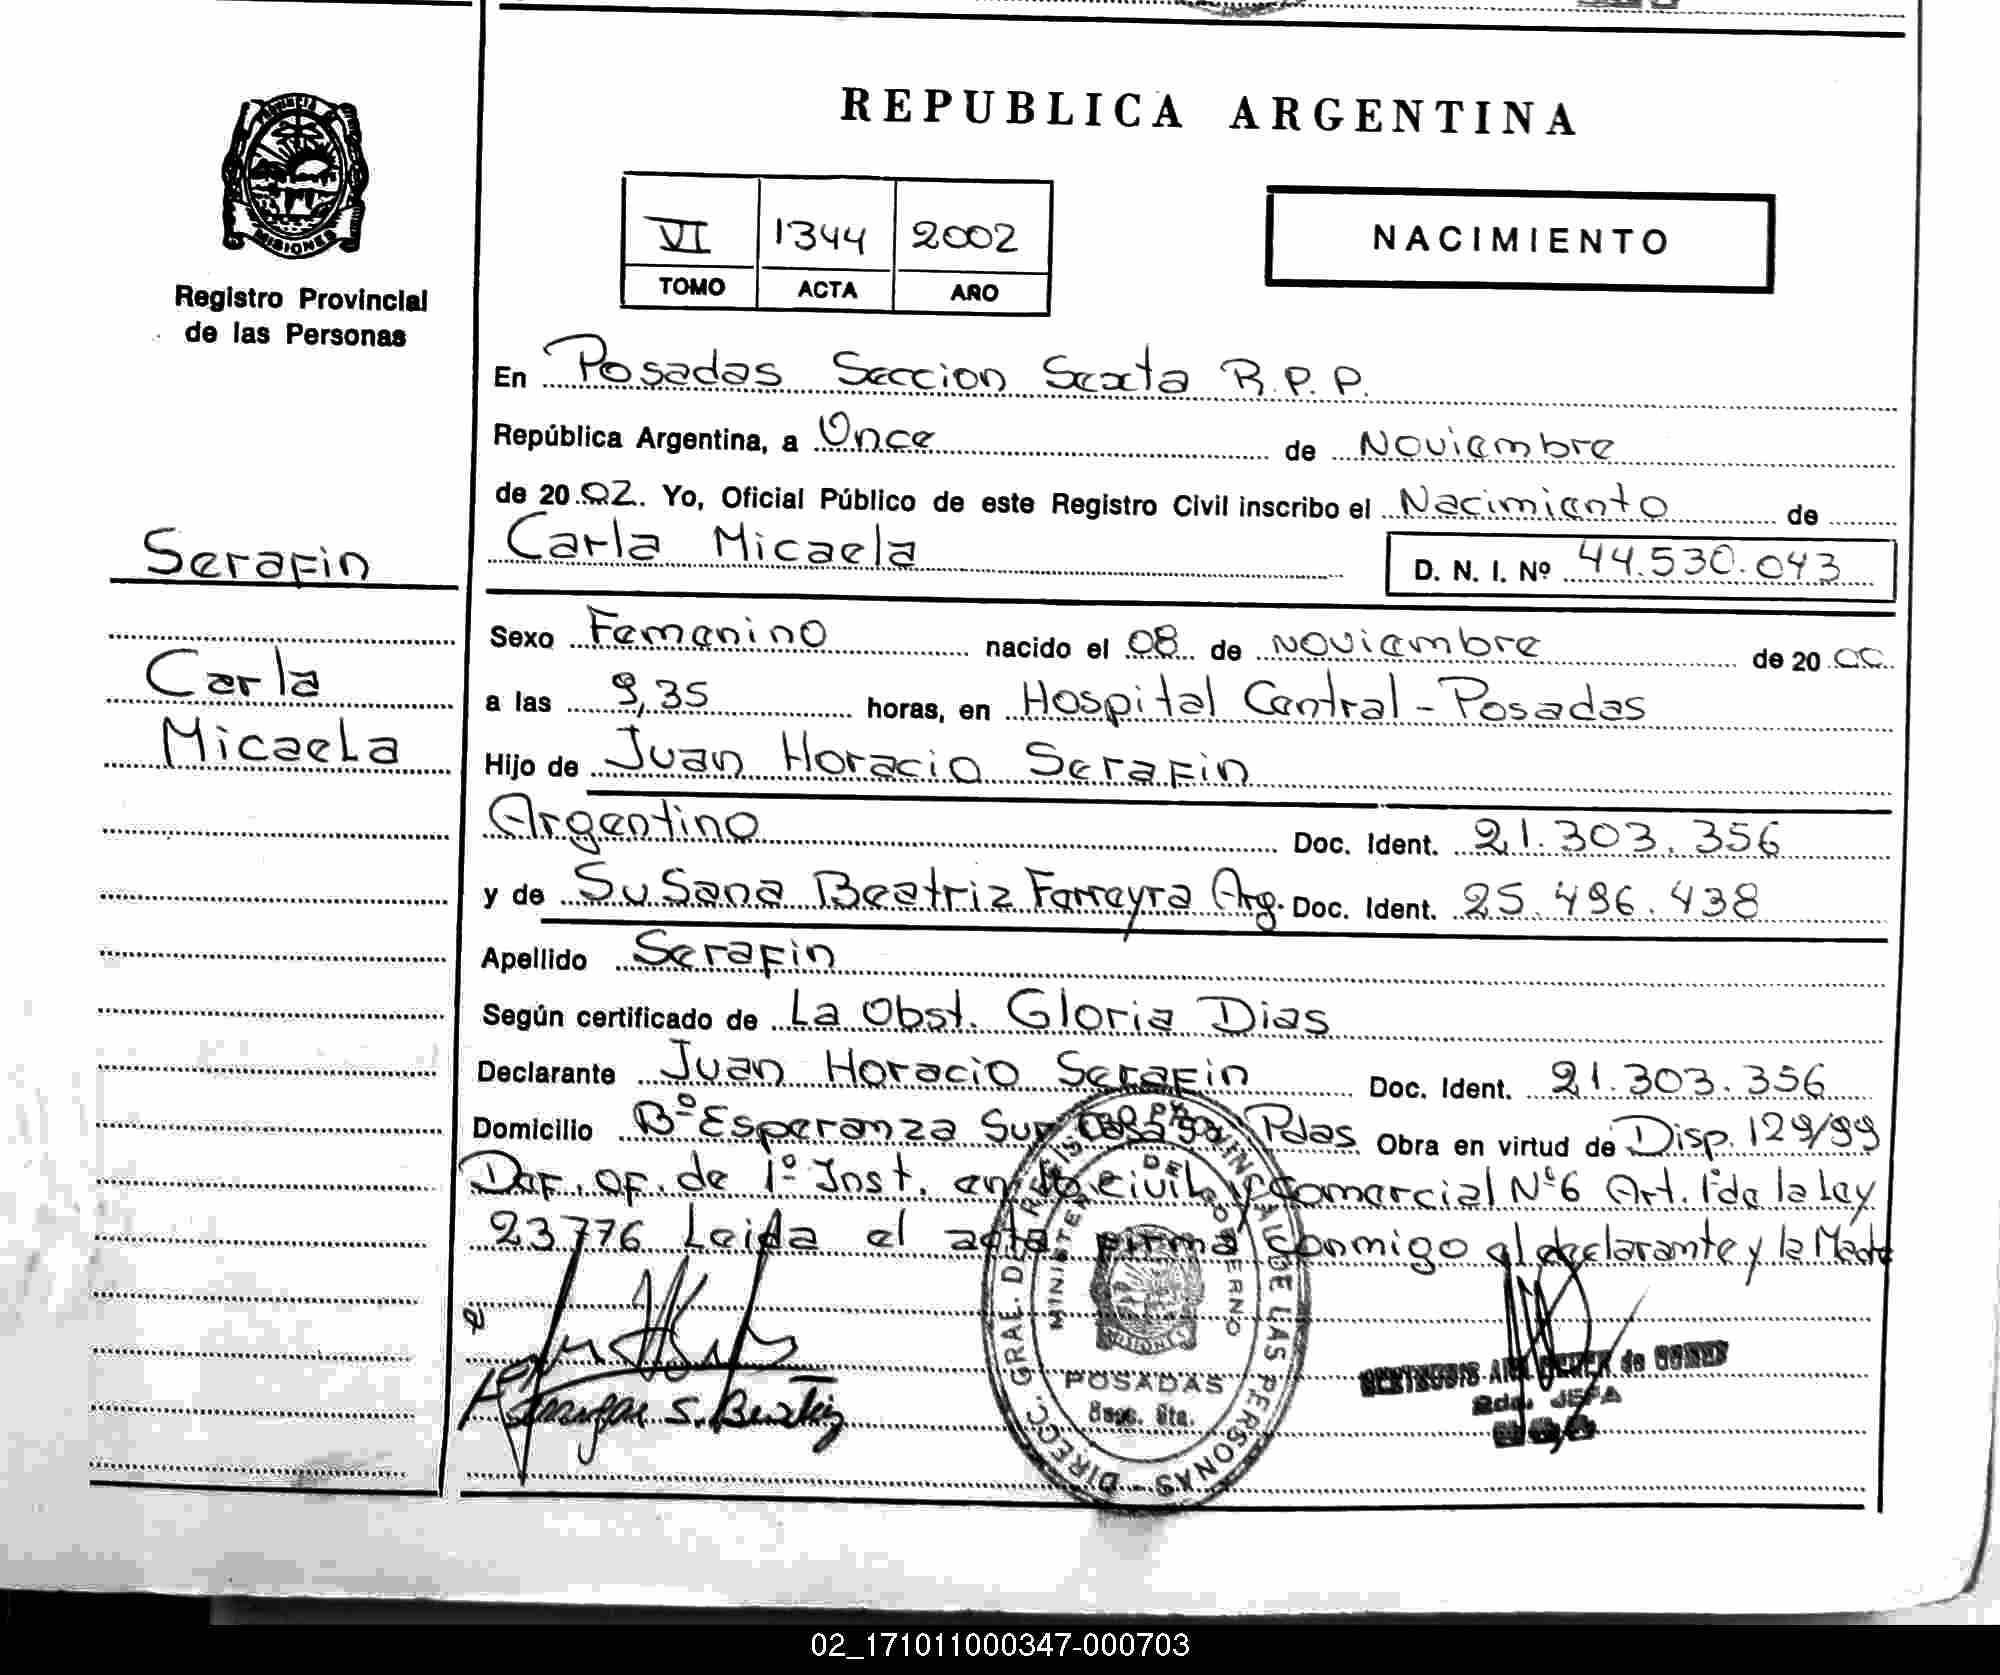 REPUBLICA ARGENTINA
PROVINCIA
MISIONES
Registro Provincial
de las Personas
VI 1344 2002
TOMO ACTA AÑO
NACIMIENTO
En Posadas Seccion Sexta R.P.P.
República Argentina, a Once de Noviembre
de 2002. Yo, Oficial Público de este Registro Civil inscribo el Nacimiento de
Serafin
Carla Micaela D. N. I. Nº 44.530.043
Sexo Femenino nacido el 08 de noviembre de 20 00
Carla
a las 9,35 horas, en Hospital Central - Posadas
Micaela
Hijo de Juan Horacio Serafin
Argentino Doc. Ident. 21.303.356
y de Susana Beatriz Ferreyra Arg. Doc. Ident. 25.496.438
Apellido Serafin
Según certificado de La Obst. Gloria Dias
Declarante Juan Horacio Serafin Doc. Ident. 21.303.356
Domicilio Bº Esperanza Sur Pdas Obra en virtud de Disp. 129/99
Def. of. de 1º Inst. en lo civil y Comercial Nº6 Art. 1º de la Ley
23776 Leida el acta firma conmigo el declarante y la Madre
DIRECC. GRAL. DE REGISTRO PROVINCIAL DE LAS PERSONAS
MINISTERIO DE GOBIERNO
MISIONES
POSADAS
Secc. 6ta.
JEFA
02_171011000347-000703